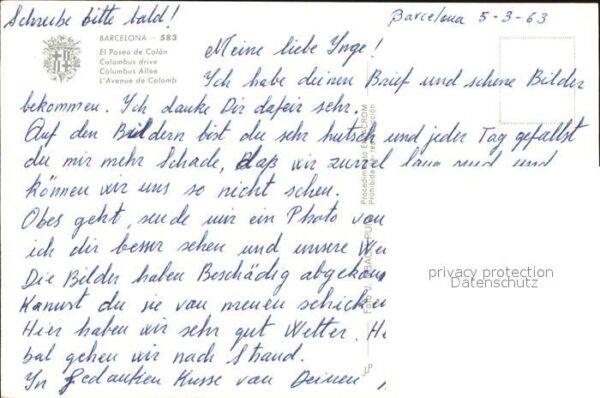 Schreibe bitte bald!
Barcelona 5-3-63
BARCELONA - 583
El Paseo de Colón
Columbus drive
Columbus Allee
L'Avenue de Colomb
Meine liebe Inge!
Ich habe deinen Brief und schöne Bilder
bekommen. Ich danke Dir dafeir sehr.
Auf den Bildern bist du sehr hutsch und jeder Tag gefällst
du mir mehr Schade, daß wir zuviel und
können wir uns so nicht sehen.
Obes geht, sende mir ein Photo von
ich dir besser sehen und unsere
Die Bilder haben Beschädig
Kannst du sie von meuen schicken
Hier haben wir sehr gut Wetter.
bal gehen wir nach Strand.
In Gedanken Kusse von Deinen
privacy protection
Datenschutz